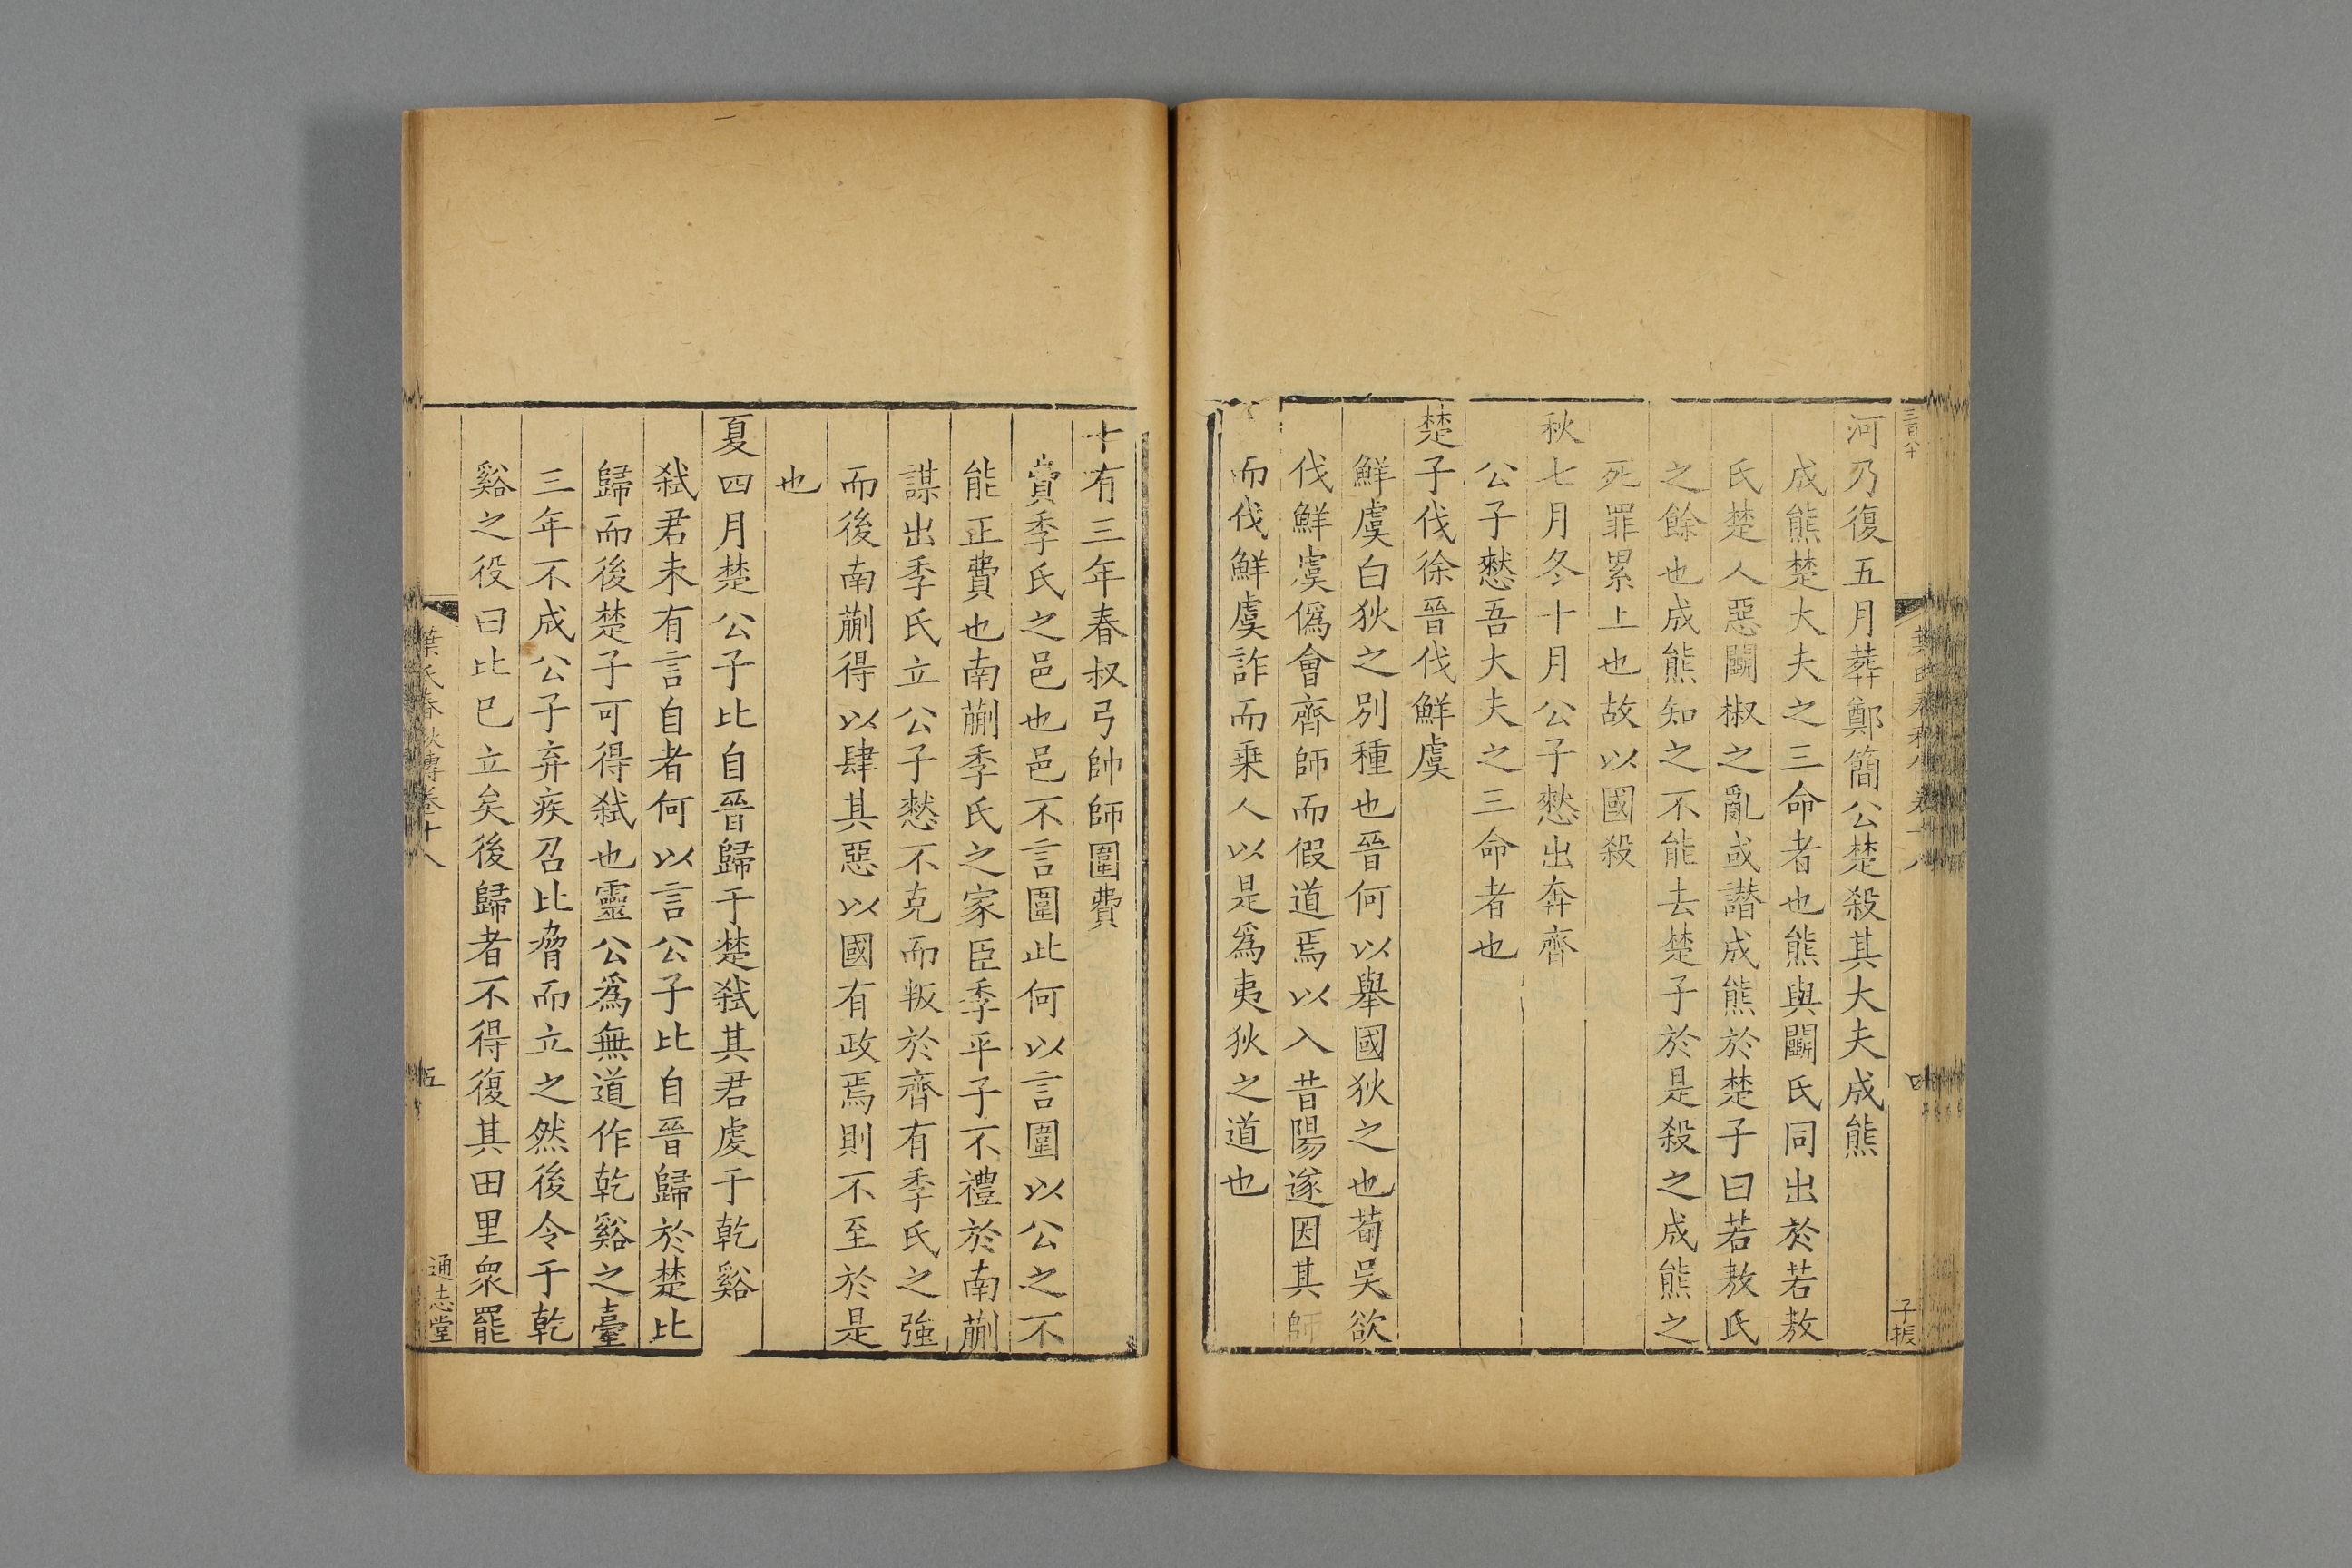 三百八十
葉氏春秋傳卷十八
四
子振
河乃復五月葬鄭簡公楚殺其大夫成熊
成熊楚大夫之三命者也熊與鬭氏同出於若敖
氏楚人惡鬭椒之亂或譖成熊於楚子曰若敖氏
之餘也成熊知之不能去楚子於是殺之成熊之
死罪累上也故以國殺
秋七月冬十月公子憖出奔齊
公子憖吾大夫之三命者也
楚子伐徐晉伐鮮虞
鮮虞白狄之別種也晉何以舉國狄之也荀吳欲
伐鮮虞僞會齊師而假道焉以入昔陽遂因其師
而伐鮮虞詐而乗人以是爲夷狄之道也
十有三年春叔弓帥師圍費
費季氏之邑也邑不言圍此何以言圍以公之不
能正費也南蒯季氏之家臣季平子不禮於南蒯
謀出季氏立公子憖不克而叛於齊有季氏之強
而後南蒯得以肆其惡以國有政焉則不至於是
也
夏四月楚公子比自晉歸于楚弑其君虔于乾谿
弑君未有言自者何以言公子比自晉歸於楚比
歸而後楚子可得弑也靈公爲無道作乾谿之臺
三年不成公子弃疾召比脅而立之然後令于乾
谿之役曰比巳立矣後歸者不得復其田里衆罷
葉氏春秋傳卷十八
五
通志堂